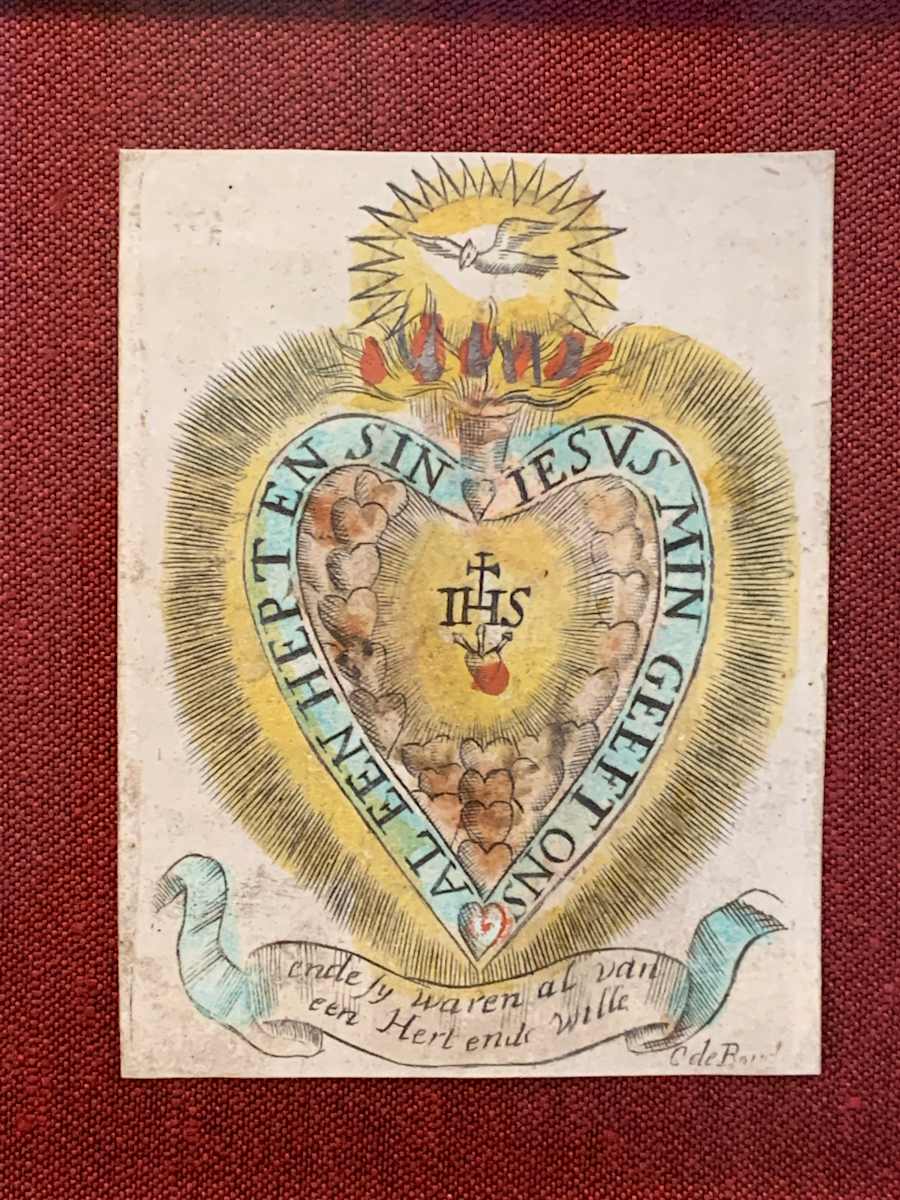 IESVS MIN GEEFT ONS
AL EEN HERT EN SIN
IHS
ende ſy waren al van
een Hert ende Wille
C de